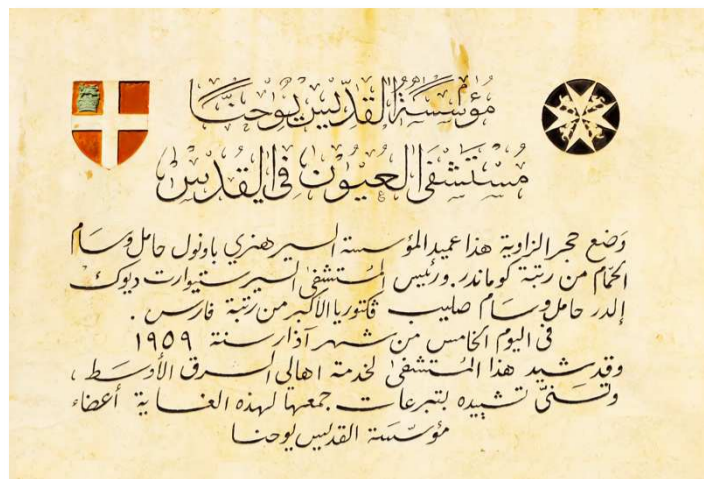 مُؤَسَّسَةُ القِدِّيس يُوحَنَّا
مُسْتَشْفَى العُيُون فِي القُدْس
وَضع حجر الزاوية هذا عميد المؤسسة السير هنري باونول حامل وسام
الحمّام من رتبة كوماندر. ورئيس المُستشفىٰ السير ستيوارت ديوك
إلدر حامل وسام صليب ڤكتوريا الأكبر من رتبة فارس .
في اليوم الخامس من شهر آذار سنة ١٩٥٩
وقد شيد هذا المُستشفىٰ لخدمة اهالي السرق الأوسط ،
وتسَنىّ تشييده بتبرعات جمعها لهذه الغاية أعضاء
مؤسّسَة القديس يوحنا